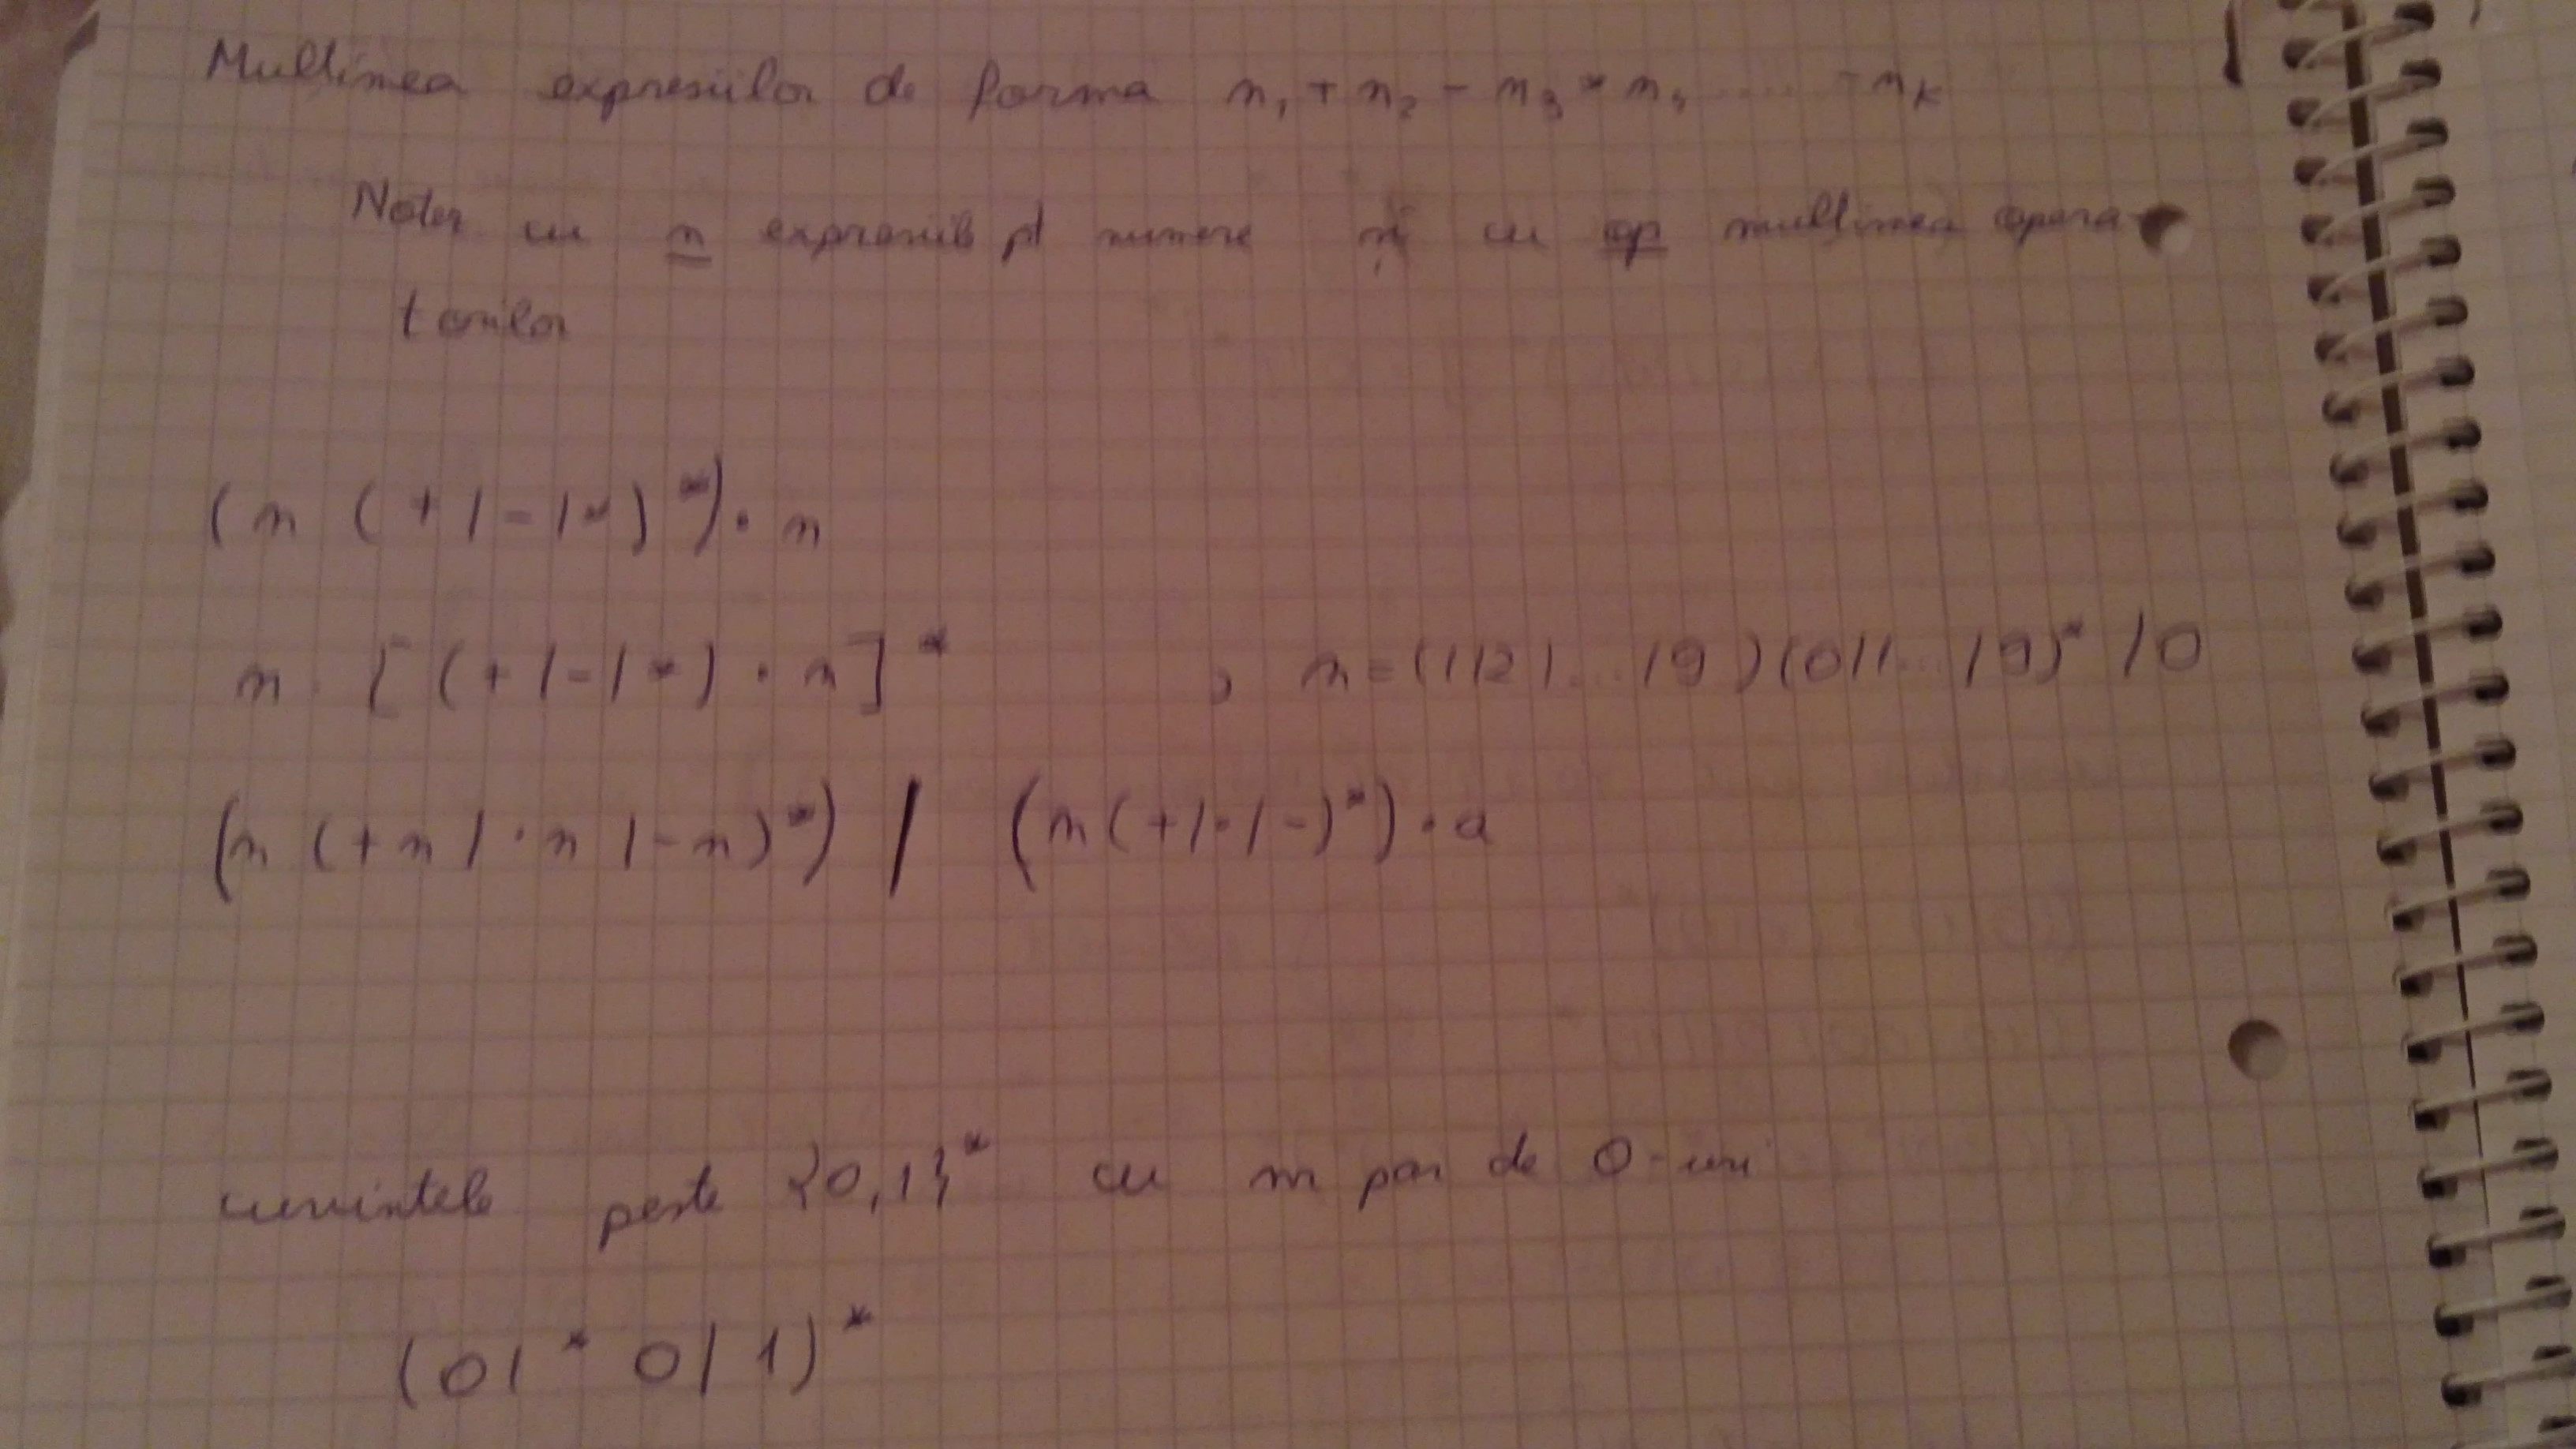 Mulțimea expresiilor de forma n₁ + n₂ - n₃ * n₄ ..... - nₖ
Notez cu n expresiile pt numere și cu op mulțimea opera-
torilor
(n (+ | - | *)*) · n
n · [(+ | - | *) · n]* , n = (1|2|...|9)(0|1...|9)* | 0
(n (+n | ·n | -n)*) | (n (+ | · | -)*) · a
cuvintele peste {0,1}* cu nr par de 0-uri
(01*0|1)*